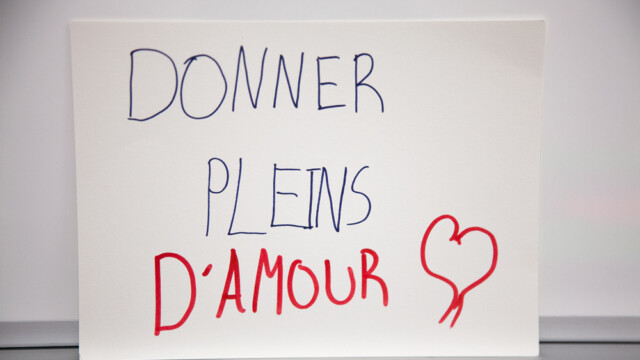 DONNER
PLEINS
D'AMOUR